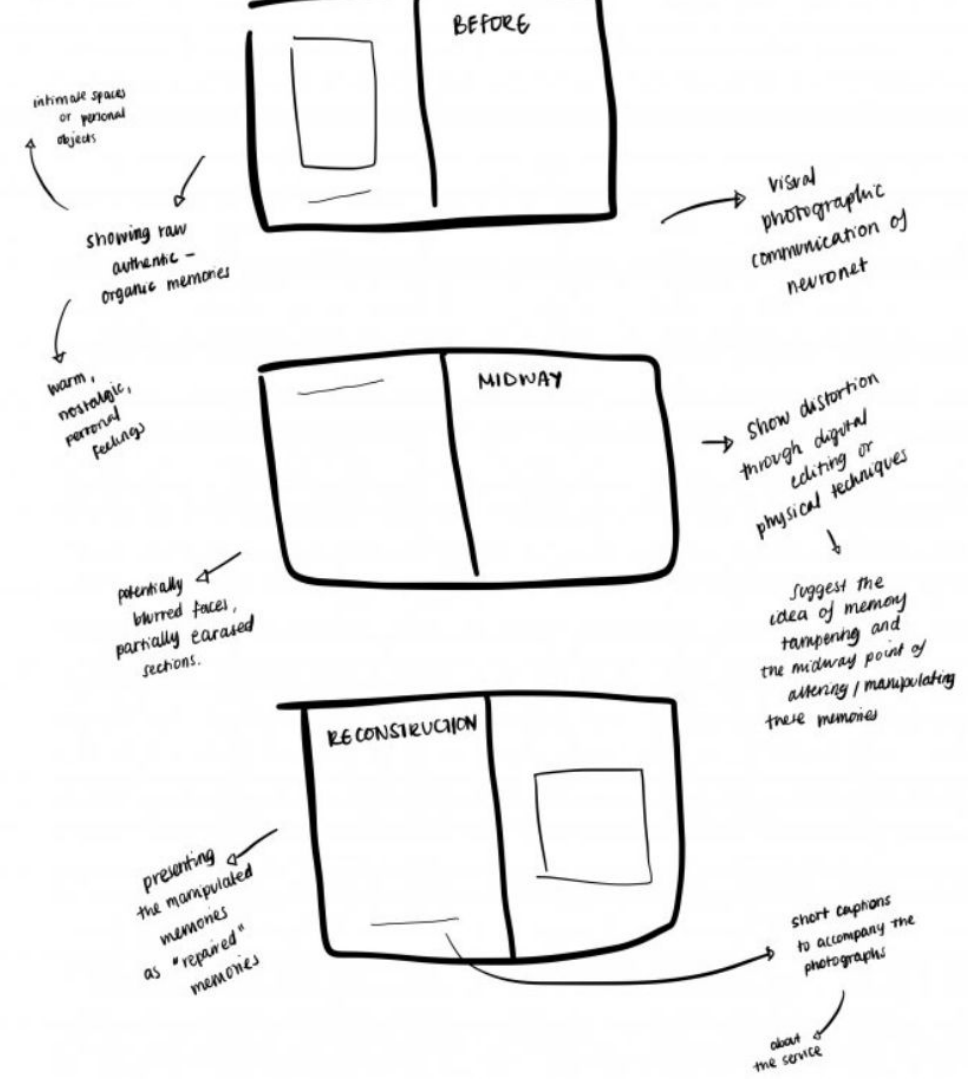 BEFORE
intimate spaces
or personal
objects
showing raw
authentic -
organic memories
warm,
nostalgic,
personal
feelings
visual
photographic
communication of
neuronet
MIDWAY
show distortion
through digital
editing or
physical techniques
suggest the
idea of memory
tampering and
the midway point of
altering / manipulating
these memories
potentially
blurred faces,
partially earased
sections.
RECONSTRUCTION
presenting
the manipulated
memories
as "repaired"
memories
short captions
to accompany the
photographs
about
the service